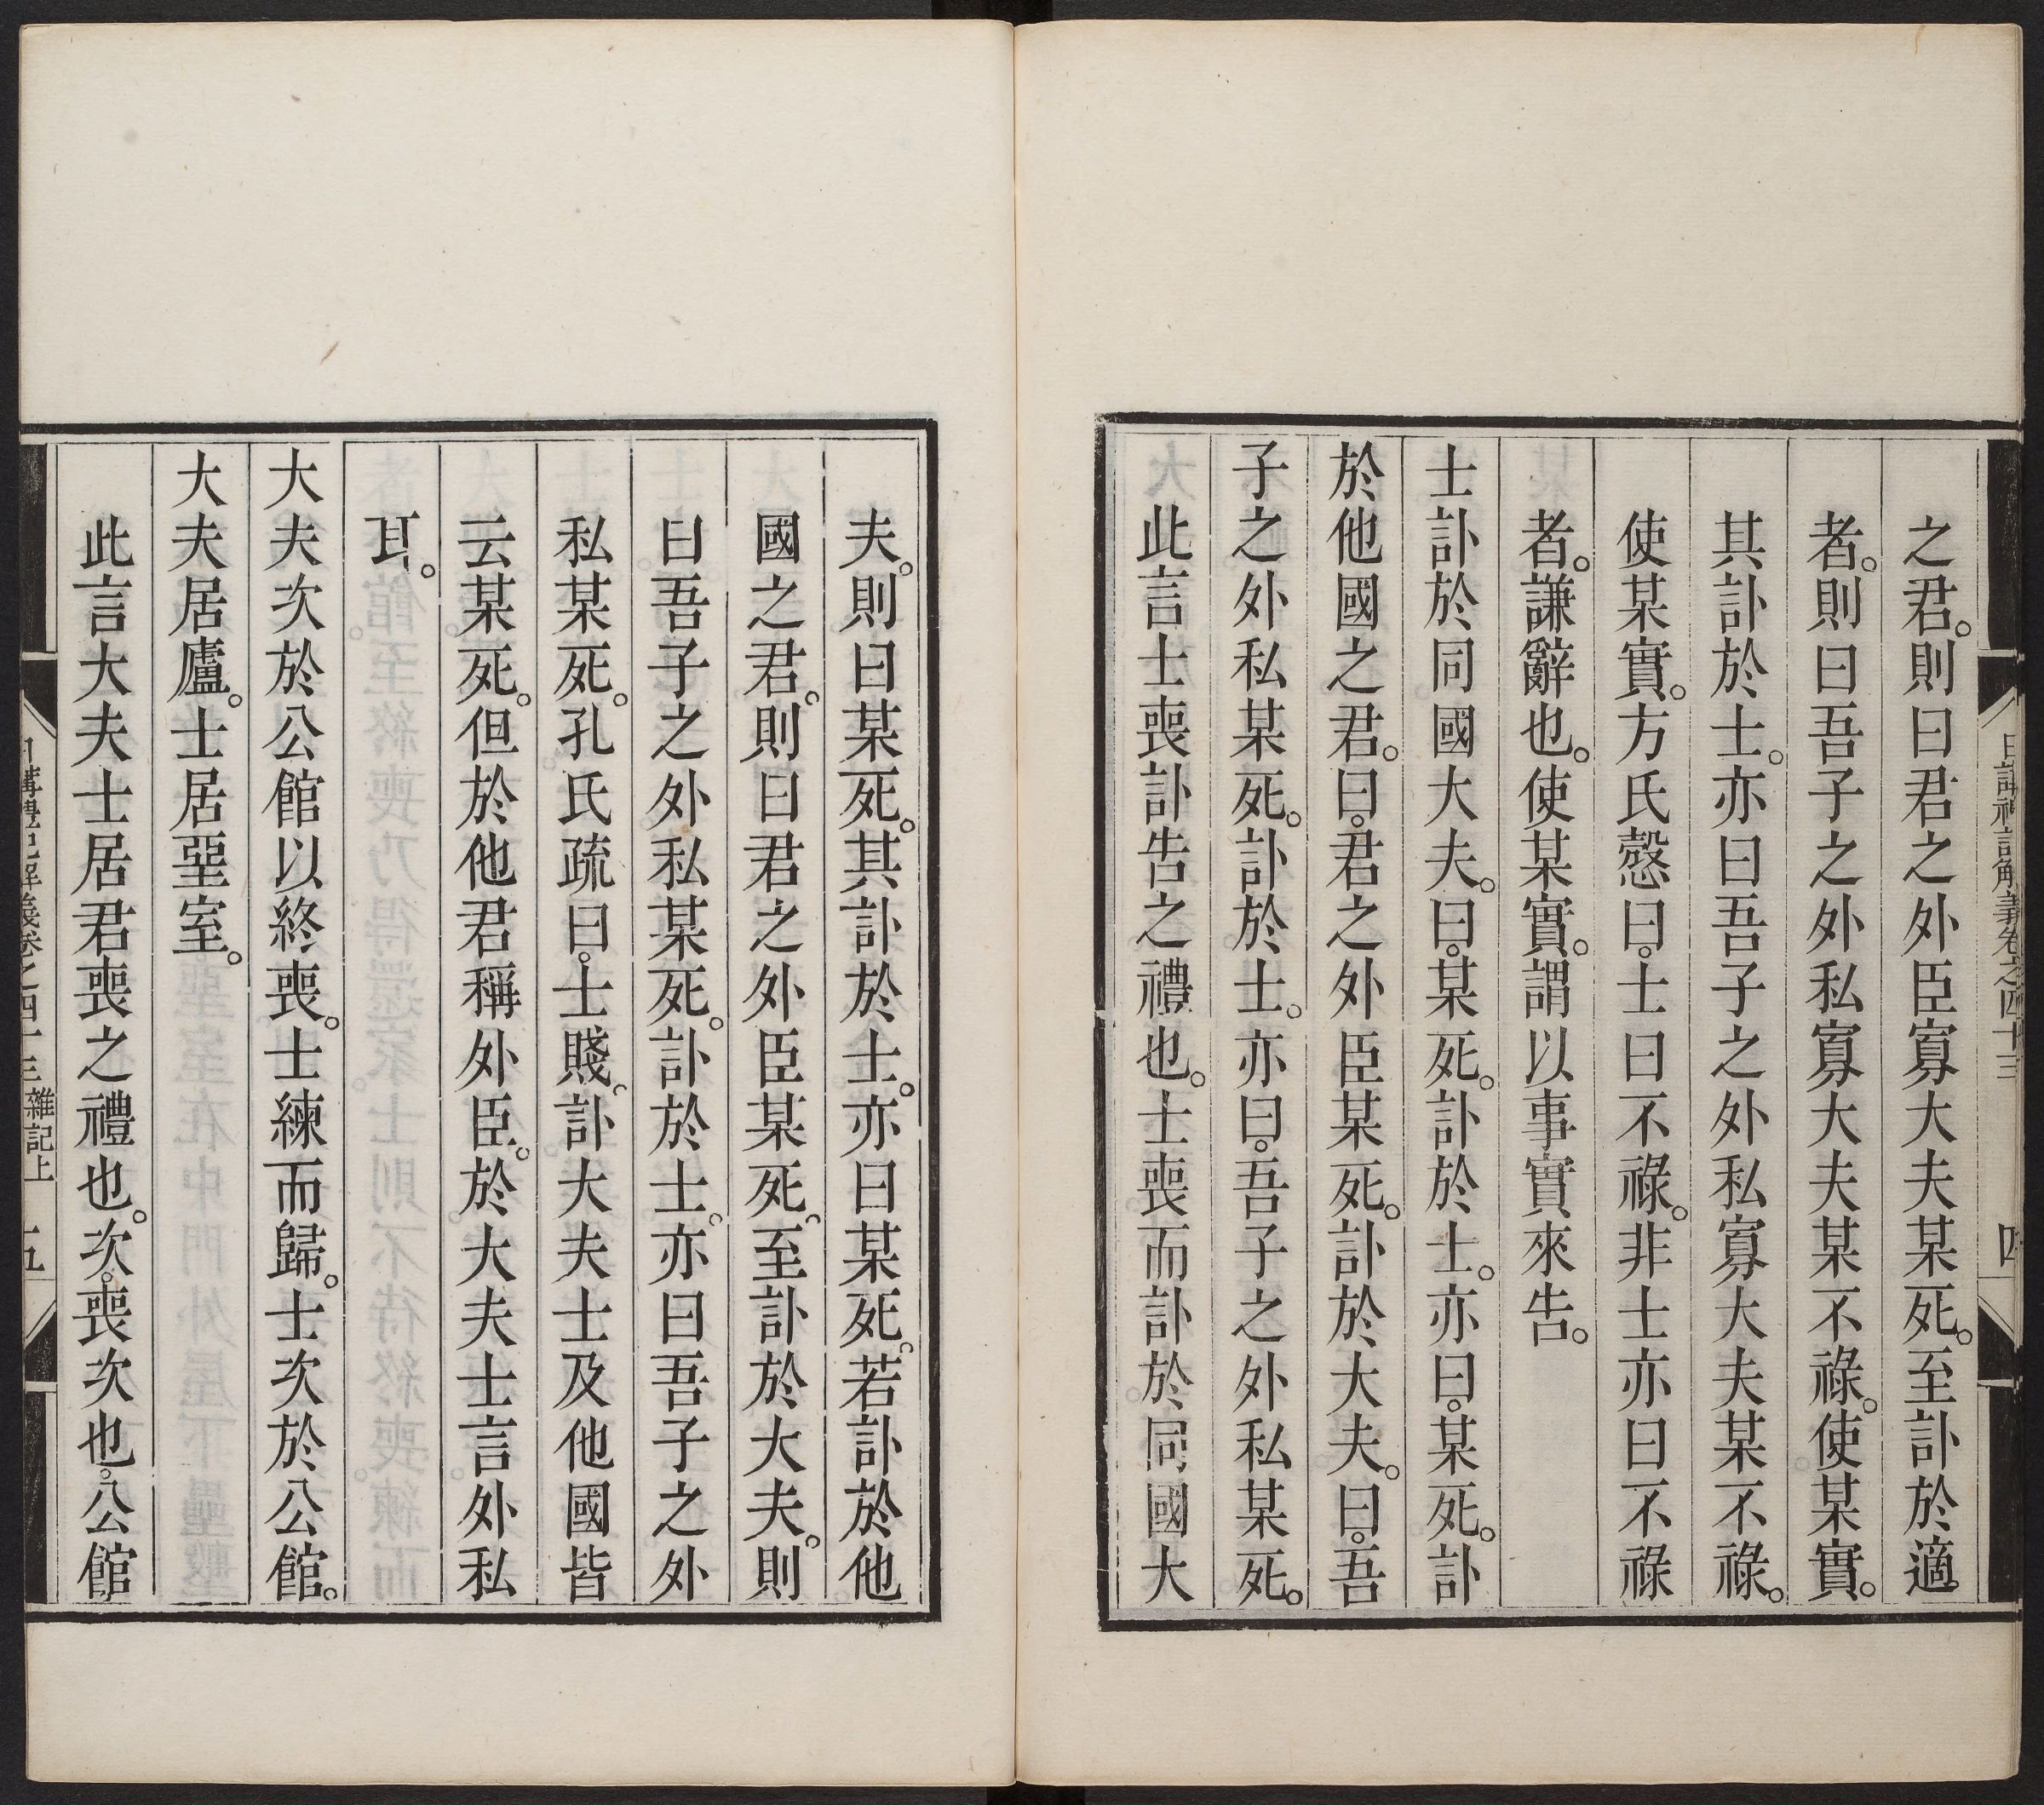 日講禮記解義卷之四十三 四
之君。則曰君之外臣寡大夫某死。至訃於適
者。則曰吾子之外私寡大夫某不祿。使某實。
其訃於士。亦曰吾子之外私寡大夫某不祿。
使某實。方氏慤曰。士曰不祿。非士亦曰不祿
者。謙辭也。使某實。謂以事實來告。
士訃於同國大夫。曰。某死。訃於士。亦曰。某死。訃
於他國之君。曰。君之外臣某死。訃於大夫。曰。吾
子之外私某死。訃於士。亦曰。吾子之外私某死。
此言士喪訃告之禮也。士喪而訃於同國大
夫。則曰某死。其訃於士。亦曰某死。若訃於他
國之君。則曰君之外臣某死。至訃於大夫。則
曰吾子之外私某死。訃於士。亦曰吾子之外
私某死。孔氏疏曰。士賤。訃大夫士及他國皆
云某死。但於他君稱外臣。於大夫士言外私
耳。
大夫次於公館以終喪。士練而歸。士次於公館。
大夫居廬。士居堊室。
此言大夫士居君喪之禮也。次。喪次也。公館
日講禮記解義卷之四十三 雜記上 五